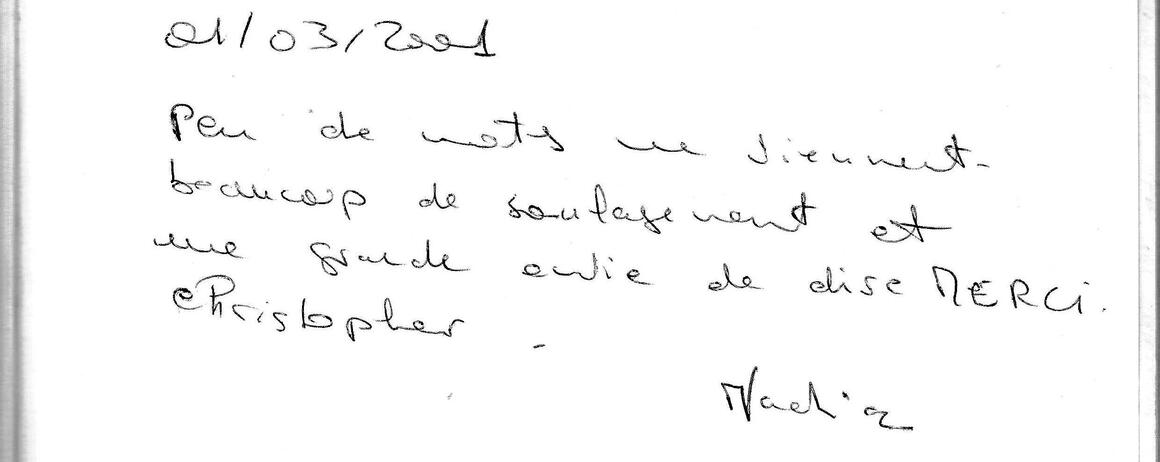 01/03/2001
Peu de mots me viennent
beaucoup de soulagement et
une grande envie de dire MERCI.
Christopher.
Nadia